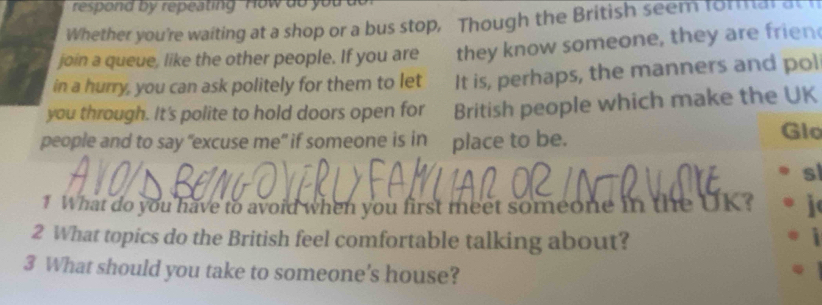 respond by repeating "How do you do."
Whether you're waiting at a shop or a bus stop,
join a queue, like the other people. If you are
in a hurry, you can ask politely for them to let
you through. It's polite to hold doors open for
people and to say "excuse me" if someone is in
Though the British seem formal at
they know someone, they are
It is, perhaps, the manners and
British people which make the UK
place to be.
AVOID BEING OVERLY FAMILIAR OR INTRUSIVE
1 What do you have to avoid when you first meet someone in the UK?
2 What topics do the British feel comfortable talking about?
3 What should you take to someone's house?